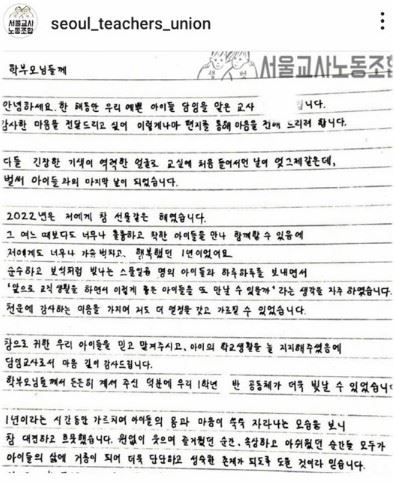 seoul_teachers_union
서울교사
노동조합
서울교사노동조합
학부모님들께
안녕하세요. 한 해동안 우리 예쁜 아이들 담임을 맡은 교사 입니다.
감사한 마음을 전달드리고 싶어 이렇게나마 편지를 통해 마음을 전해 드리려 합니다.
다들 긴장한 기색이 역력한 얼굴로 교실에 처음 들어서던 날이 엊그제같은데,
벌써 아이들과의 마지막 날이 되었습니다.
2022년은 저에게 참 선물같은 해였습니다.
그 여느 때보다도 너무나 훌륭하고 착한 아이들을 만나 함께할 수 있음에
저에게도 너무나 가슴 벅차고, 행복했던 1년이었어요
순수하고 보석처럼 빛나는 스물일곱 명의 아이들과 하루하루를 보내면서
'앞으로 교직 생활을 하면서 이렇게 좋은 아이들을 또 만날 수 있을까' 라는 생각을 자주 하였습니다.
덕분에 감사하는 마음을 가지며 저도 더 열정을 갖고 가르칠 수 있었습니다.
참으로 귀한 우리 아이들을 믿고 맡겨주시고, 아이의 학교생활을 늘 지지해주셨음에
담임교사로서 마음 깊이 감사드립니다.
학부모님들께서 든든히 계셔 주신 덕분에 우리 1학년 반 공동체가 더욱 빛날 수 있었습니다
1년이라는 시간동안 가르치며 아이들의 몸과 마음이 쑥쑥 자라나는 모습을 보니
참 대견하고 흐뭇했습니다. 원없이 웃으며 즐거웠던 순간, 속상하고 아쉬웠던 순간들 모두가
아이들의 삶에 거름이 되어 더욱 단단하고 성숙한 존재가 되도록 도울 것이라 믿습니다.